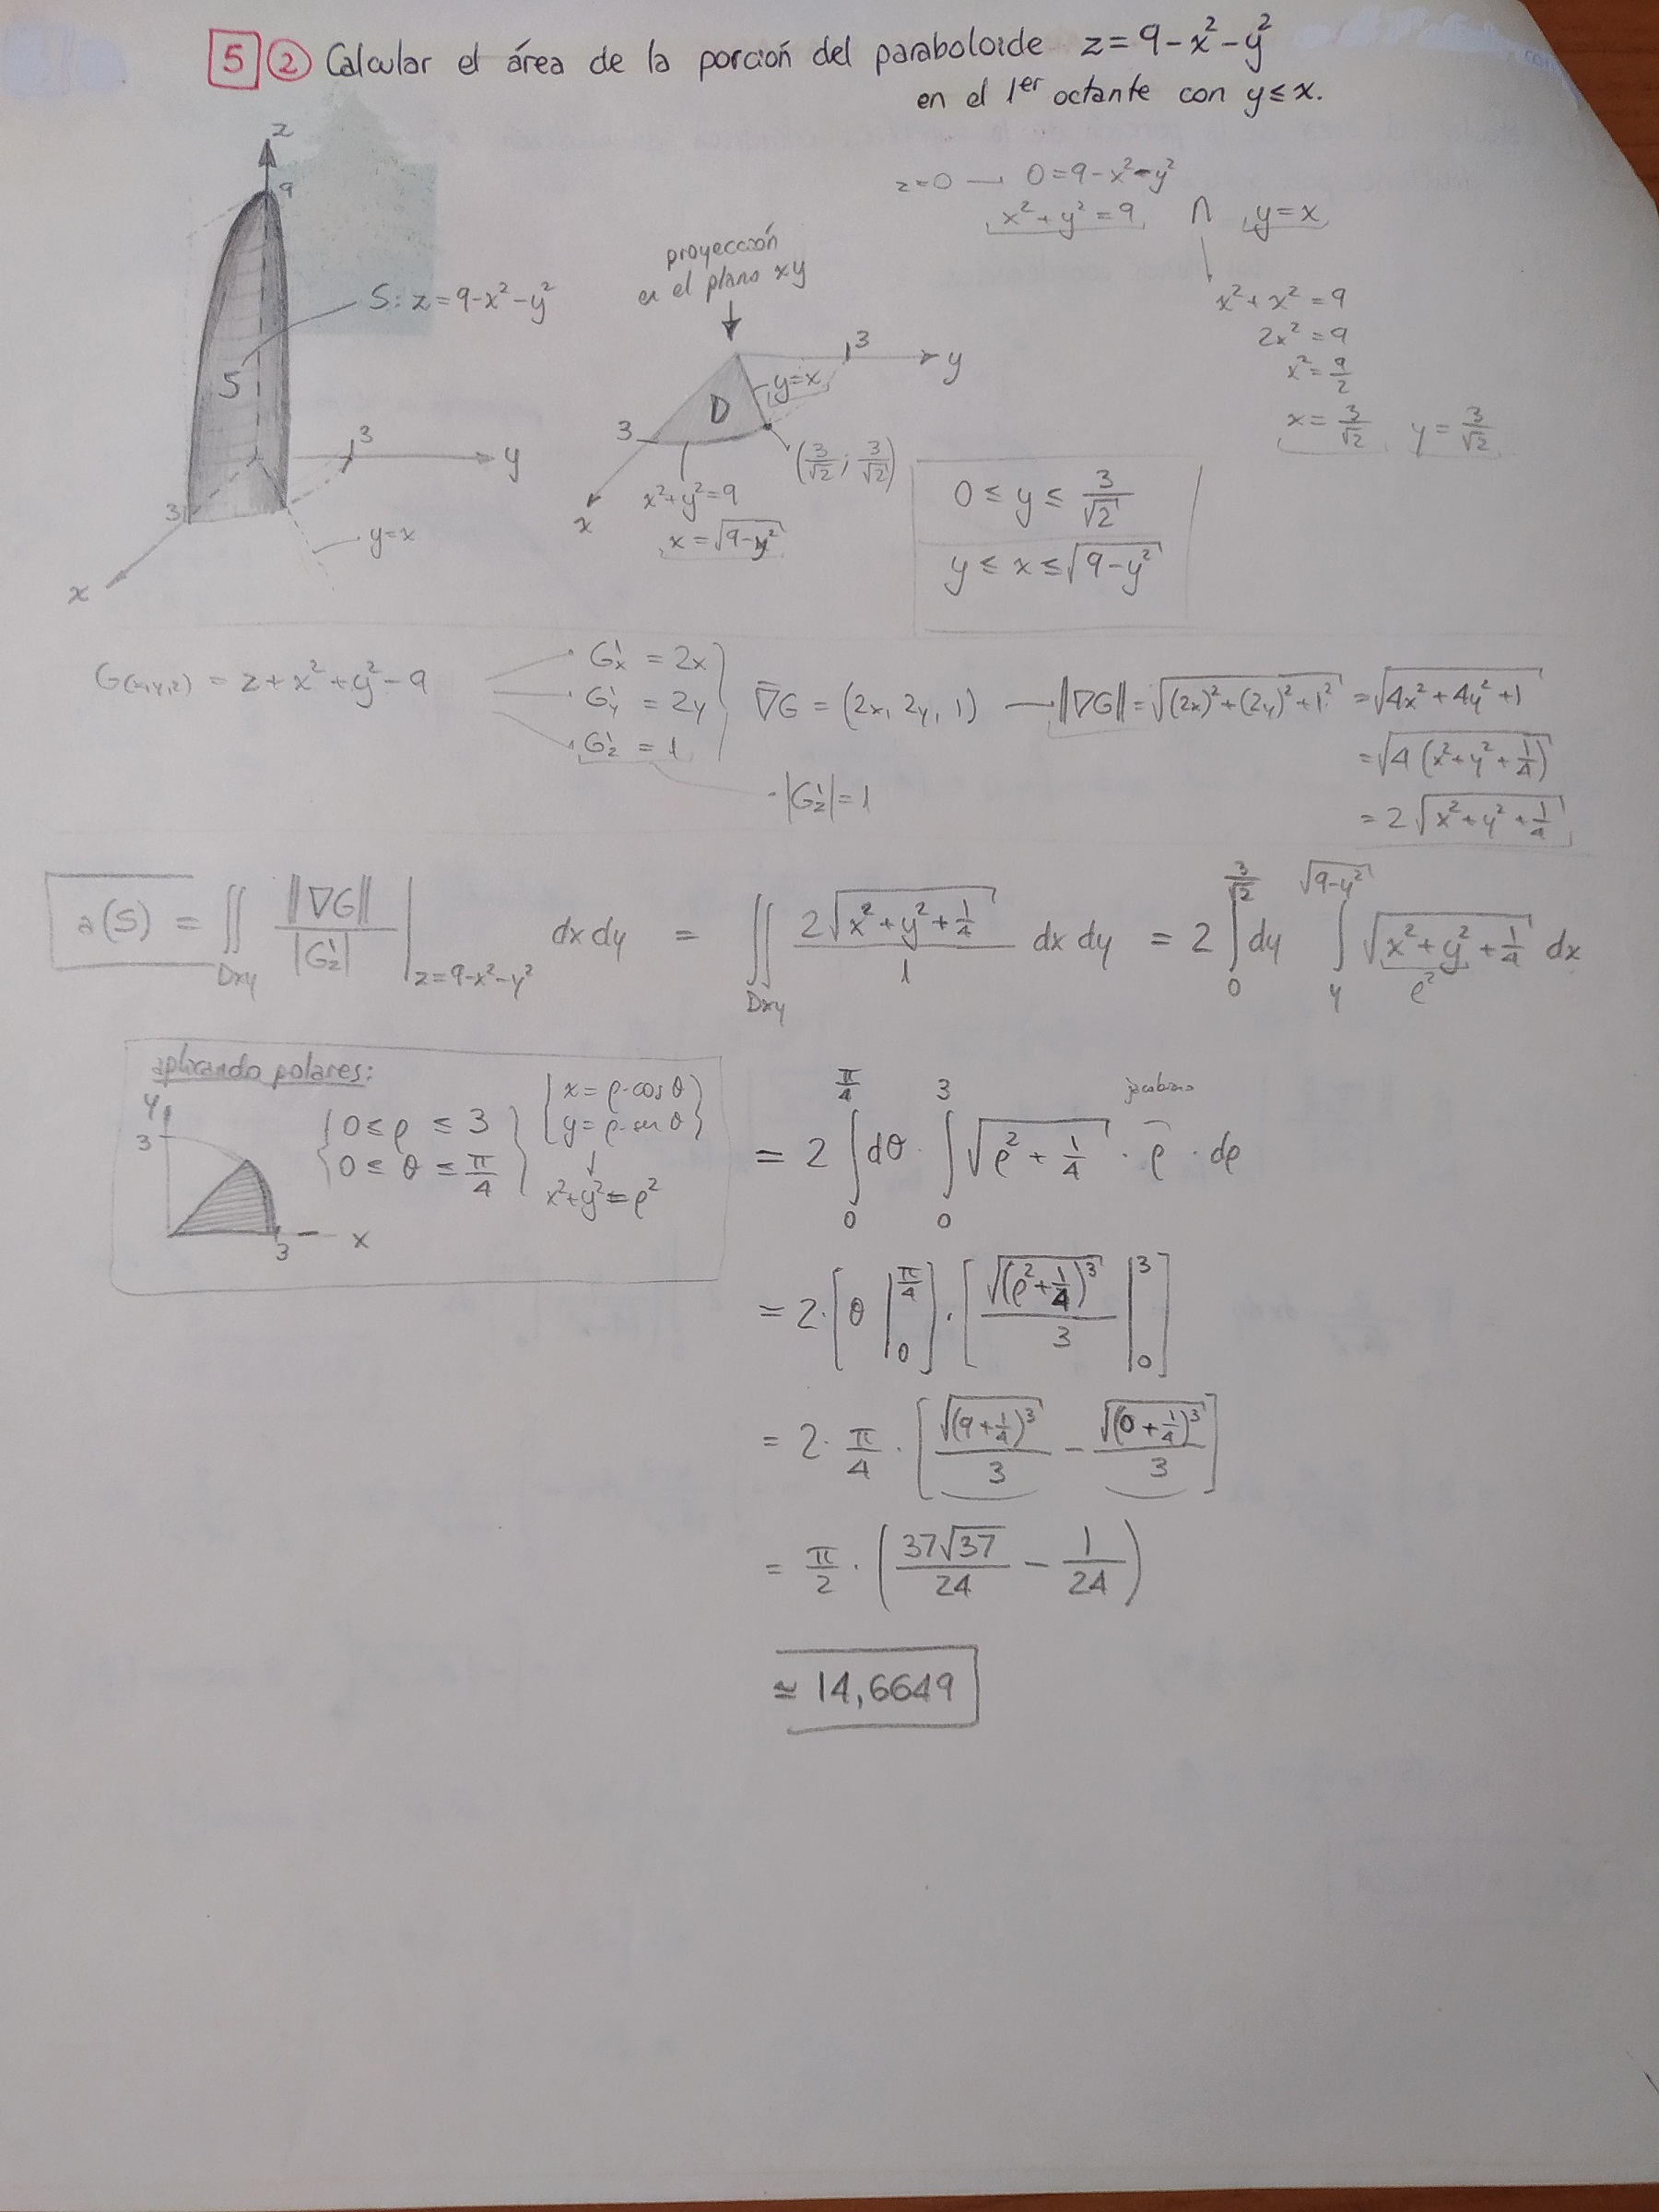 5 ② Calcular el área de la porción del paraboloide z = 9 - x² - y²
en el 1er octante con y ≤ x.
z
9
S: z = 9 - x² - y²
S
3
y
3
y = x
x
proyección
en el plano xy
3
y
y = x
D
3
(3/√2 ; 3/√2)
x² + y² = 9
x = √(9 - y²)
x
z = 0 → 0 = 9 - x² - y²
x² + y² = 9 ∩ y = x
x² + x² = 9
2x² = 9
x² = 9/2
x = 3/√2 y = 3/√2
0 ≤ y ≤ 3/√2
y ≤ x ≤ √(9 - y²)
G(x,y,z) = z + x² + y² - 9
G'x = 2x
G'y = 2y
G'z = 1
∇̄G = (2x, 2y, 1) → ||∇G|| = √((2x)² + (2y)² + 1²) = √(4x² + 4y² + 1)
= √(4(x² + y² + 1/4))
|G'z| = 1
= 2√(x² + y² + 1/4)
a(S) = ∬Dxy ||∇G||/|G'z| |z=9-x²-y² dx dy = ∬Dxy 2√(x² + y² + 1/4)/1 dx dy = 2 ∫₀^(3/√2) dy ∫y^√(9-y²) √(x² + y² + 1/4) dx
ρ²
aplicando polares:
y
3
3
x
0 ≤ ρ ≤ 3
0 ≤ θ ≤ π/4
x = ρ·cos θ
y = ρ·sen θ
↓
x² + y² = ρ²
jacobiano
= 2 ∫₀^(π/4) dθ · ∫₀³ √(ρ² + 1/4) · ρ · dρ
= 2·[θ |₀^(π/4)] · [√((ρ² + 1/4)³)/3 |₀³]
= 2· π/4 · [√((9 + 1/4)³)/3 - √((0 + 1/4)³)/3]
= π/2 · (37√37/24 - 1/24)
≃ 14,6649